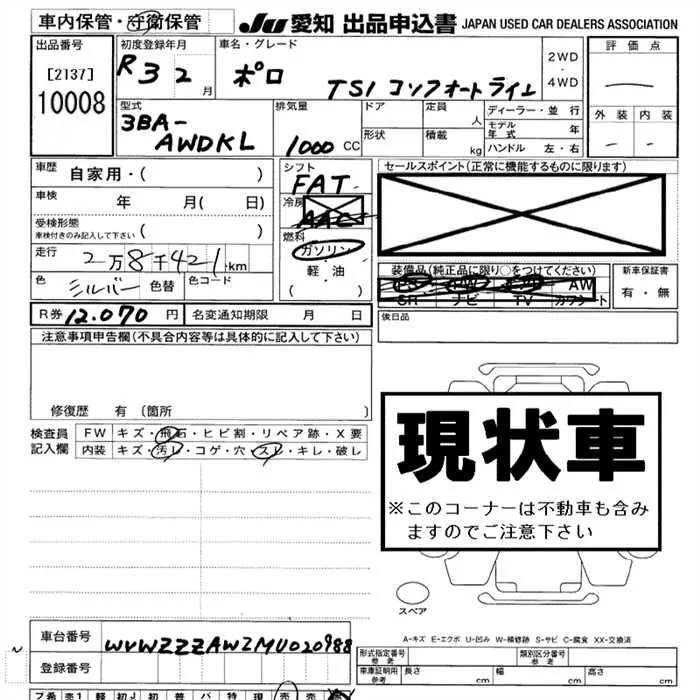 車内保管・守衛保管 JU 愛知 出品申込書 JAPAN USED CAR DEALERS ASSOCIATION
出品番号 初度登録年月 車名・グレード 2WD・4WD 評価点
[2137] R3 2月 ポロ TSI コンフォートライン
10008
型式 排気量 ドア 定員 人 ディーラー・並行 外装 内装
3BA-AWDKL 1000 CC 形状 積載 kg モデル年式 年
ハンドル 左・右
車歴 自家用・( ) シフト FAT セールスポイント(正常に機能するものに限ります)
車検 年 月( 日) 冷房 AAC
受検形態 車検付きのみ記入して下さい ( ) 燃料 ガソリン・軽油・( )
走行 2万8千421km
装備品(純正品に限り○をつけてください) 新車保証書
色 シルバー 色替 色コード ナビ TV AW 有・無
R券 12.070円 名変通知期限 月 日 後日品
注意事項申告欄(不具合内容等は具体的に記入して下さい)
修復歴 有(箇所 )
検査員記入欄 FW キズ・飛石・ヒビ割・リペア跡・X要
内装 キズ・汚レ・コゲ・穴・スレ・キレ・破レ
現状車
※このコーナーは不動車も含みますのでご注意下さい
スペア
A-キズ E-エクボ U-凹み W-補修跡 S-サビ C-腐食 XX-交換済
車台番号 WVWZZZAWZMU020988
登録番号
形式指定番号 参考 類別区分番号 参考
車庫証明用 参考 長さ cm 幅 cm 高さ cm